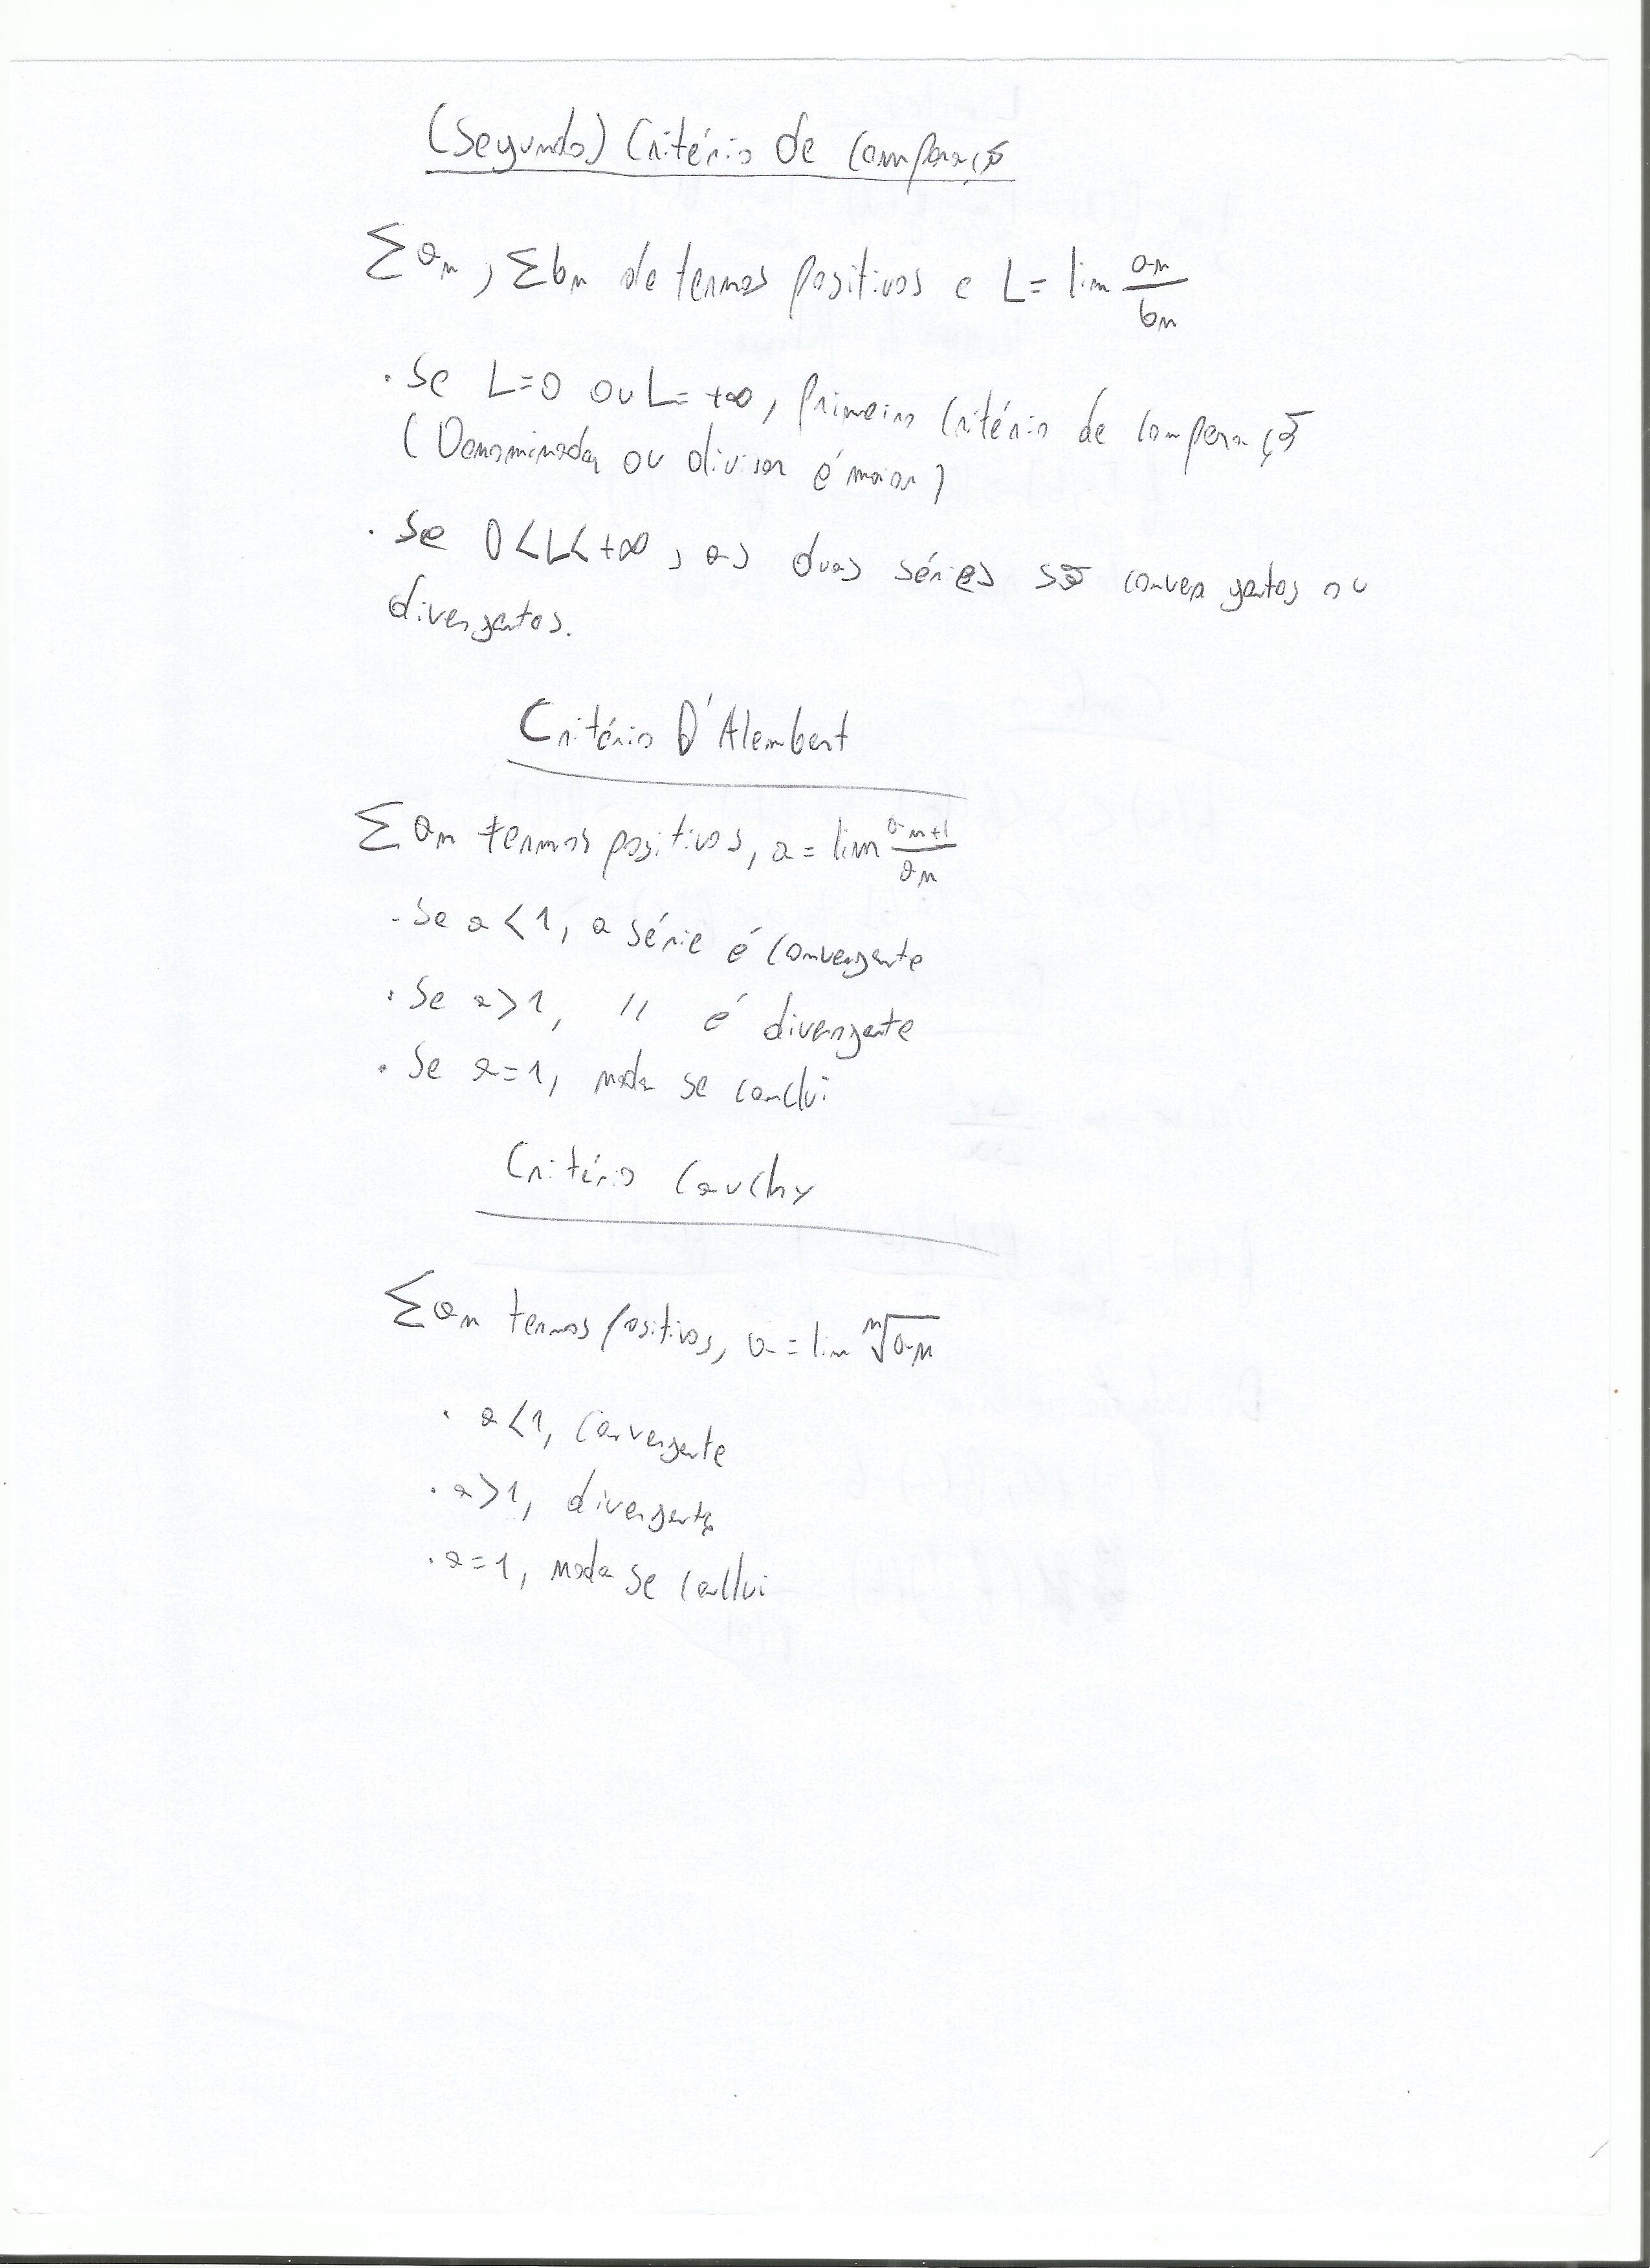 (Segundo) Critério de Comparação
∑an, ∑bn de termos positivos e L = lim an/bn
· Se L=0 ou L=+∞, Primeiro Critério de Comparação
(Denominador ou divisor é maior)
· Se 0<L<+∞, as duas séries são convergentes ou
divergentes.
Critério D'Alembert
∑an termos positivos, a = lim an+1/an
· Se a<1, a série é convergente
· Se a>1, " é divergente
· Se a=1, nada se conclui
Critério Cauchy
∑an termos positivos, a = lim ⁿ√an
· a<1, convergente
· a>1, divergente
· a=1, nada se conclui